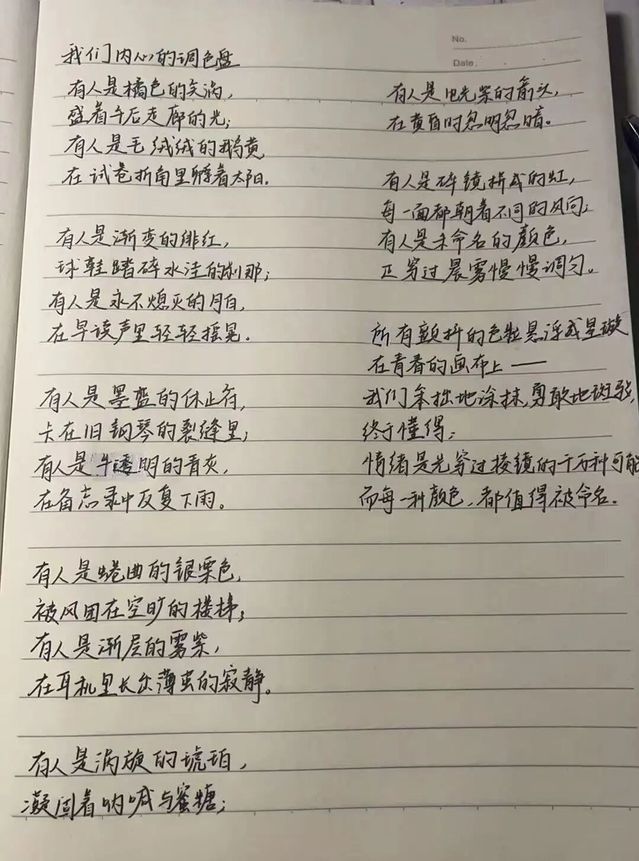 No.
Date.
我们内心的调色盘
有人是橘色的笑涡,
盛着午后走廊的光;
有人是毛绒绒的鹅黄
在试卷折角里孵着太阳.
有人是渐变的绯红,
球鞋踏碎水洼的刹那;
有人是永不熄灭的月白
在早读声里轻轻摇晃.
有人是墨蓝的休止符,
卡在旧钢琴的裂缝里;
有人是半透明的青灰,
在备忘录中反复下雨。
有人是蜷曲的银栗色,
被风团在空旷的楼梯;
有人是渐层的雾紫,
在耳机里长出薄茧的寂静。
有人是涡旋的琥珀,
凝固着呐喊与蜜糖;
有人是电光紫的箭头,
在黄昏时忽明忽暗。
有人是碎镜拼成的虹,
每一面都朝着不同的风向;
有人是未命名的颜色,
正穿过晨雾慢慢调匀。
所有颤抖的色粒悬浮成星璇
在青春的画布上——
我们笨拙地涂抹,勇敢地斑驳,
终于懂得:
情绪是光穿过棱镜的千万种可能
而每一种颜色,都值得被命名.